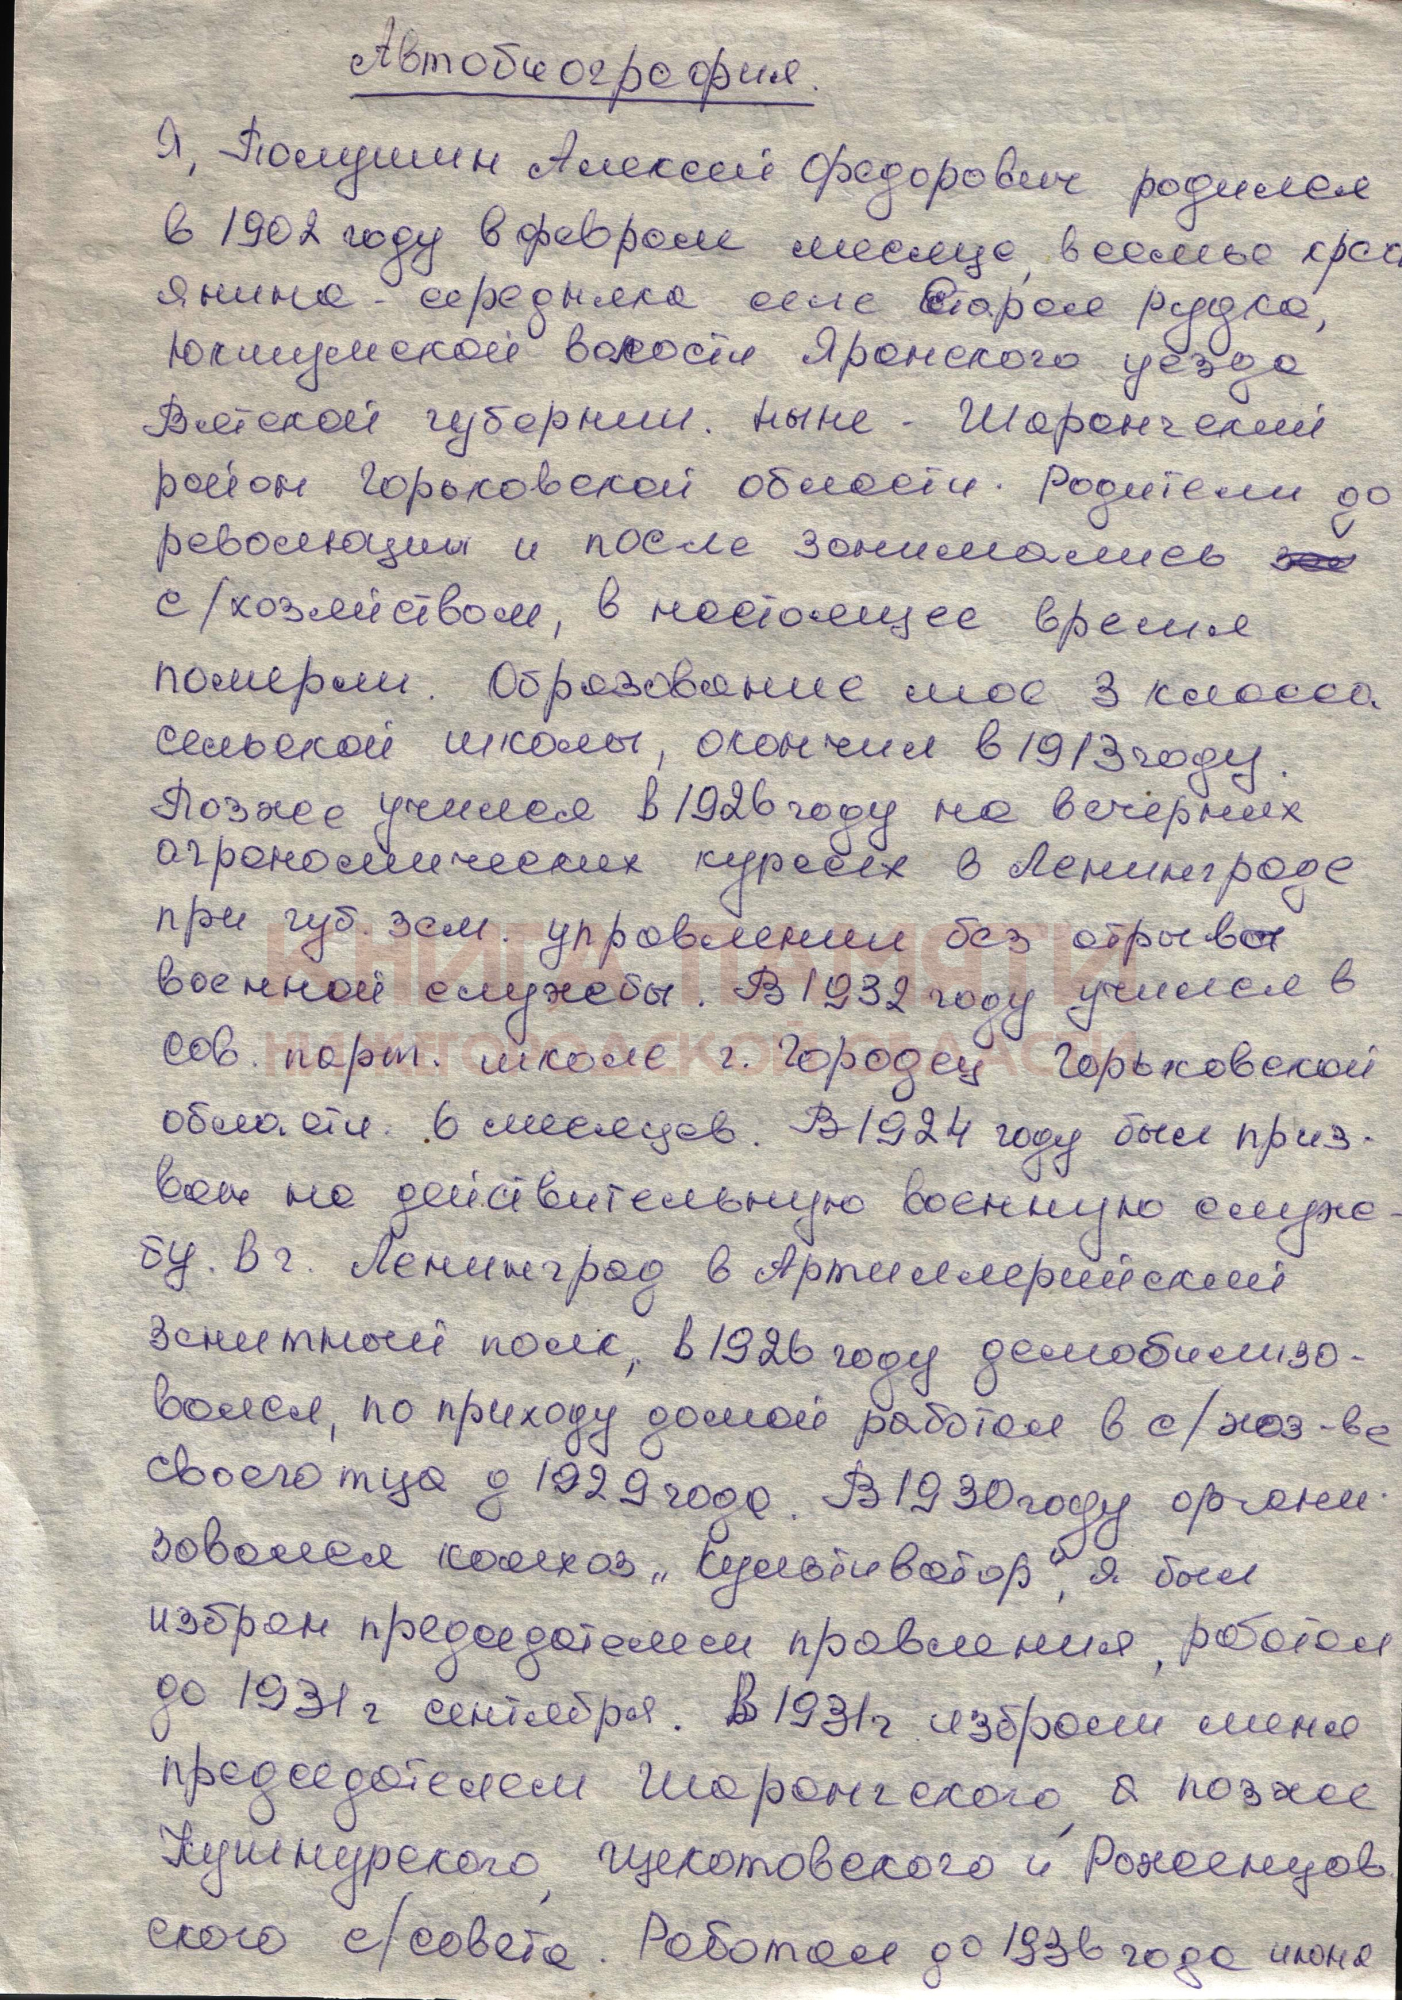 Автобиография.
Я, Полушин Алексей Федорович родился
в 1902 году в феврале месяце, в семье крест
янина - середняка селе Старая Рудка,
Юкшумской волости Яранского уезда
Вятской губернии. ныне - Шарангский
район Горьковской области. Родители до
революции и после занимались
с/хозяйством, в настоящее время
померли. Образование мое 3 класса
сельской школы, окончил в 1913 году.
Позже учился в 1926 году на вечерних
агрономических курсах в Ленинграде
при губ. зем. управлении без отрыва
КНИГА ПАМЯТИ
военной службы. В 1932 году учился в
НИЖЕГОРОДСКОЙ ОБЛАСТИ
сов. парт. школе г. Городец Горьковской
области. 6 месяцев. В 1924 году был приз-
ван на действительную военную служ-
бу. в г. Ленинград в Артиллерийский
зенитный полк, в 1926 году демобилизо-
вался, по приходу домой работал в с/хоз-ве
своего тца д 1929 года. В 1930 году органи-
зовался колхоз „Культиватор", я был
избран председателем правления, работал
до 1931 г сентября. В 1931 г избрали меня
председателем Шарангского, а позже
Кушнурского, Щекотовского и Роженцов
ского с/совета. Работал до 1936 года июня